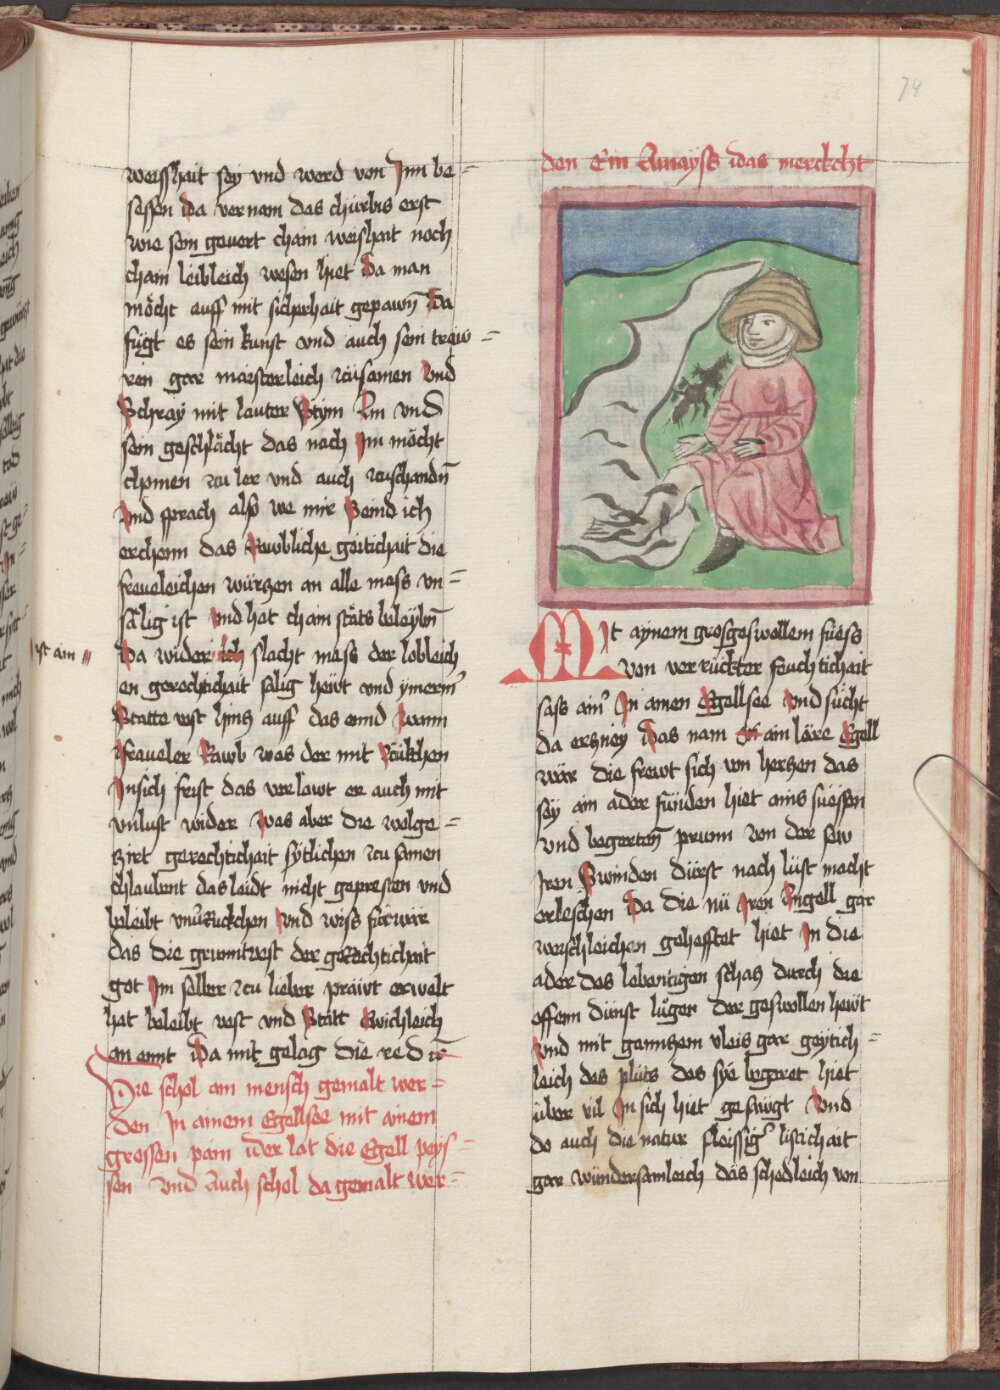 weisshait sey vnd werd von Inn be=
sessen Da vernam das chürbis erst
wie sein geuert cham weishait noch
cham leibleich wesen hiet Da man
möcht auff mit sicherhait gepawñ Da
fügt es sein kunst vnd auch sein trew=
ren gar maisterleich zusamen Vnd
Schray mit lauter Stym Im vnd
sein geschlächt das nach Im möcht
chomen zu ler vnd auch zuschandñ
Vnd sprach also we mir Seind ich
erchenn das Rawbliche geitichait die
freueleichen würgen an alle mass vn=
sälig ist Vnd hat cham stäts beleybñ
Da wider ich slacht mass der lobleich
en gerechtichait sälig hewt vnd ymerm
Statte vest hinz auff das ennd Wann
freueler Rawb was der mit Rükchen
In sich frist das verlawt er auch mit
vnlust wider Was aber die wolge=
zirt gerechtichait sytlichen zu samen
chlaubent das leidt nicht gepresten vnd
beleibt vnuerückchen Vnd wiss fürwar
das die gruntvest der gerechtichait
got Im selber zu lieber präwt erwelt
hat beleibt vest vnd Stätt Ewichleich
an ennt Da mit gelag die red
Hie schol ain mensch gemalt wer=
den In ainem Egellsee mit ainem
grossen pain der lat die Egell peys=
sen Vnd Auch schol da gemalt wer=
st ain
74
den Ein Amayss das merckcht
Mit aynem grosgeswollem fuess
von verrückter feuchtichait
sass ainr In ainen Egellsee Vnd sücht
da erzney Das nam ain läre Egell
wär die frewt sich von herzen das
sey ain ader fünden hiet ains süessen
vnd begerten prunn von der sew
Iren Swinden dürst nach lüst macht
erleschen Da die nü Iren Angell gar
verschleichen gehefftet hiet In die
ader das lebentigen schaz durch die
offenn dünst lüger der geswollen hewt
Vnd mit gannzem vleis gar geytich=
leich des pluts das sye begeret hiet
über vil In sich hiet gesawgt Vnd
do auch die natur fleissiger listichait
gar wündersamleich das schedleich von